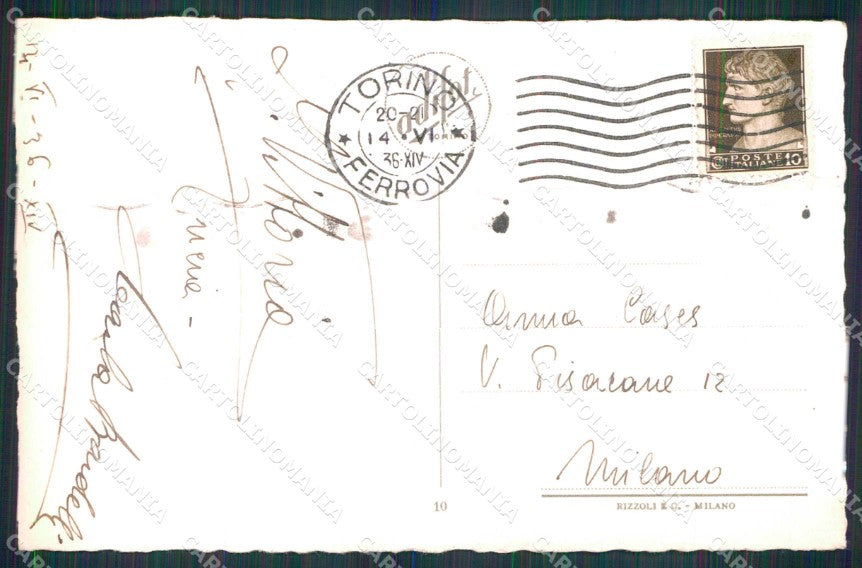 14-VI-36-XIV
Vittoria
TORINO
20-21
14 VI
36·XIV
FERROVIA
POSTE
ITALIANE
10
Anna Cases
V. Pisacane 12
Milano
10
RIZZOLI & C. - MILANO
CARTOLINOMANIA